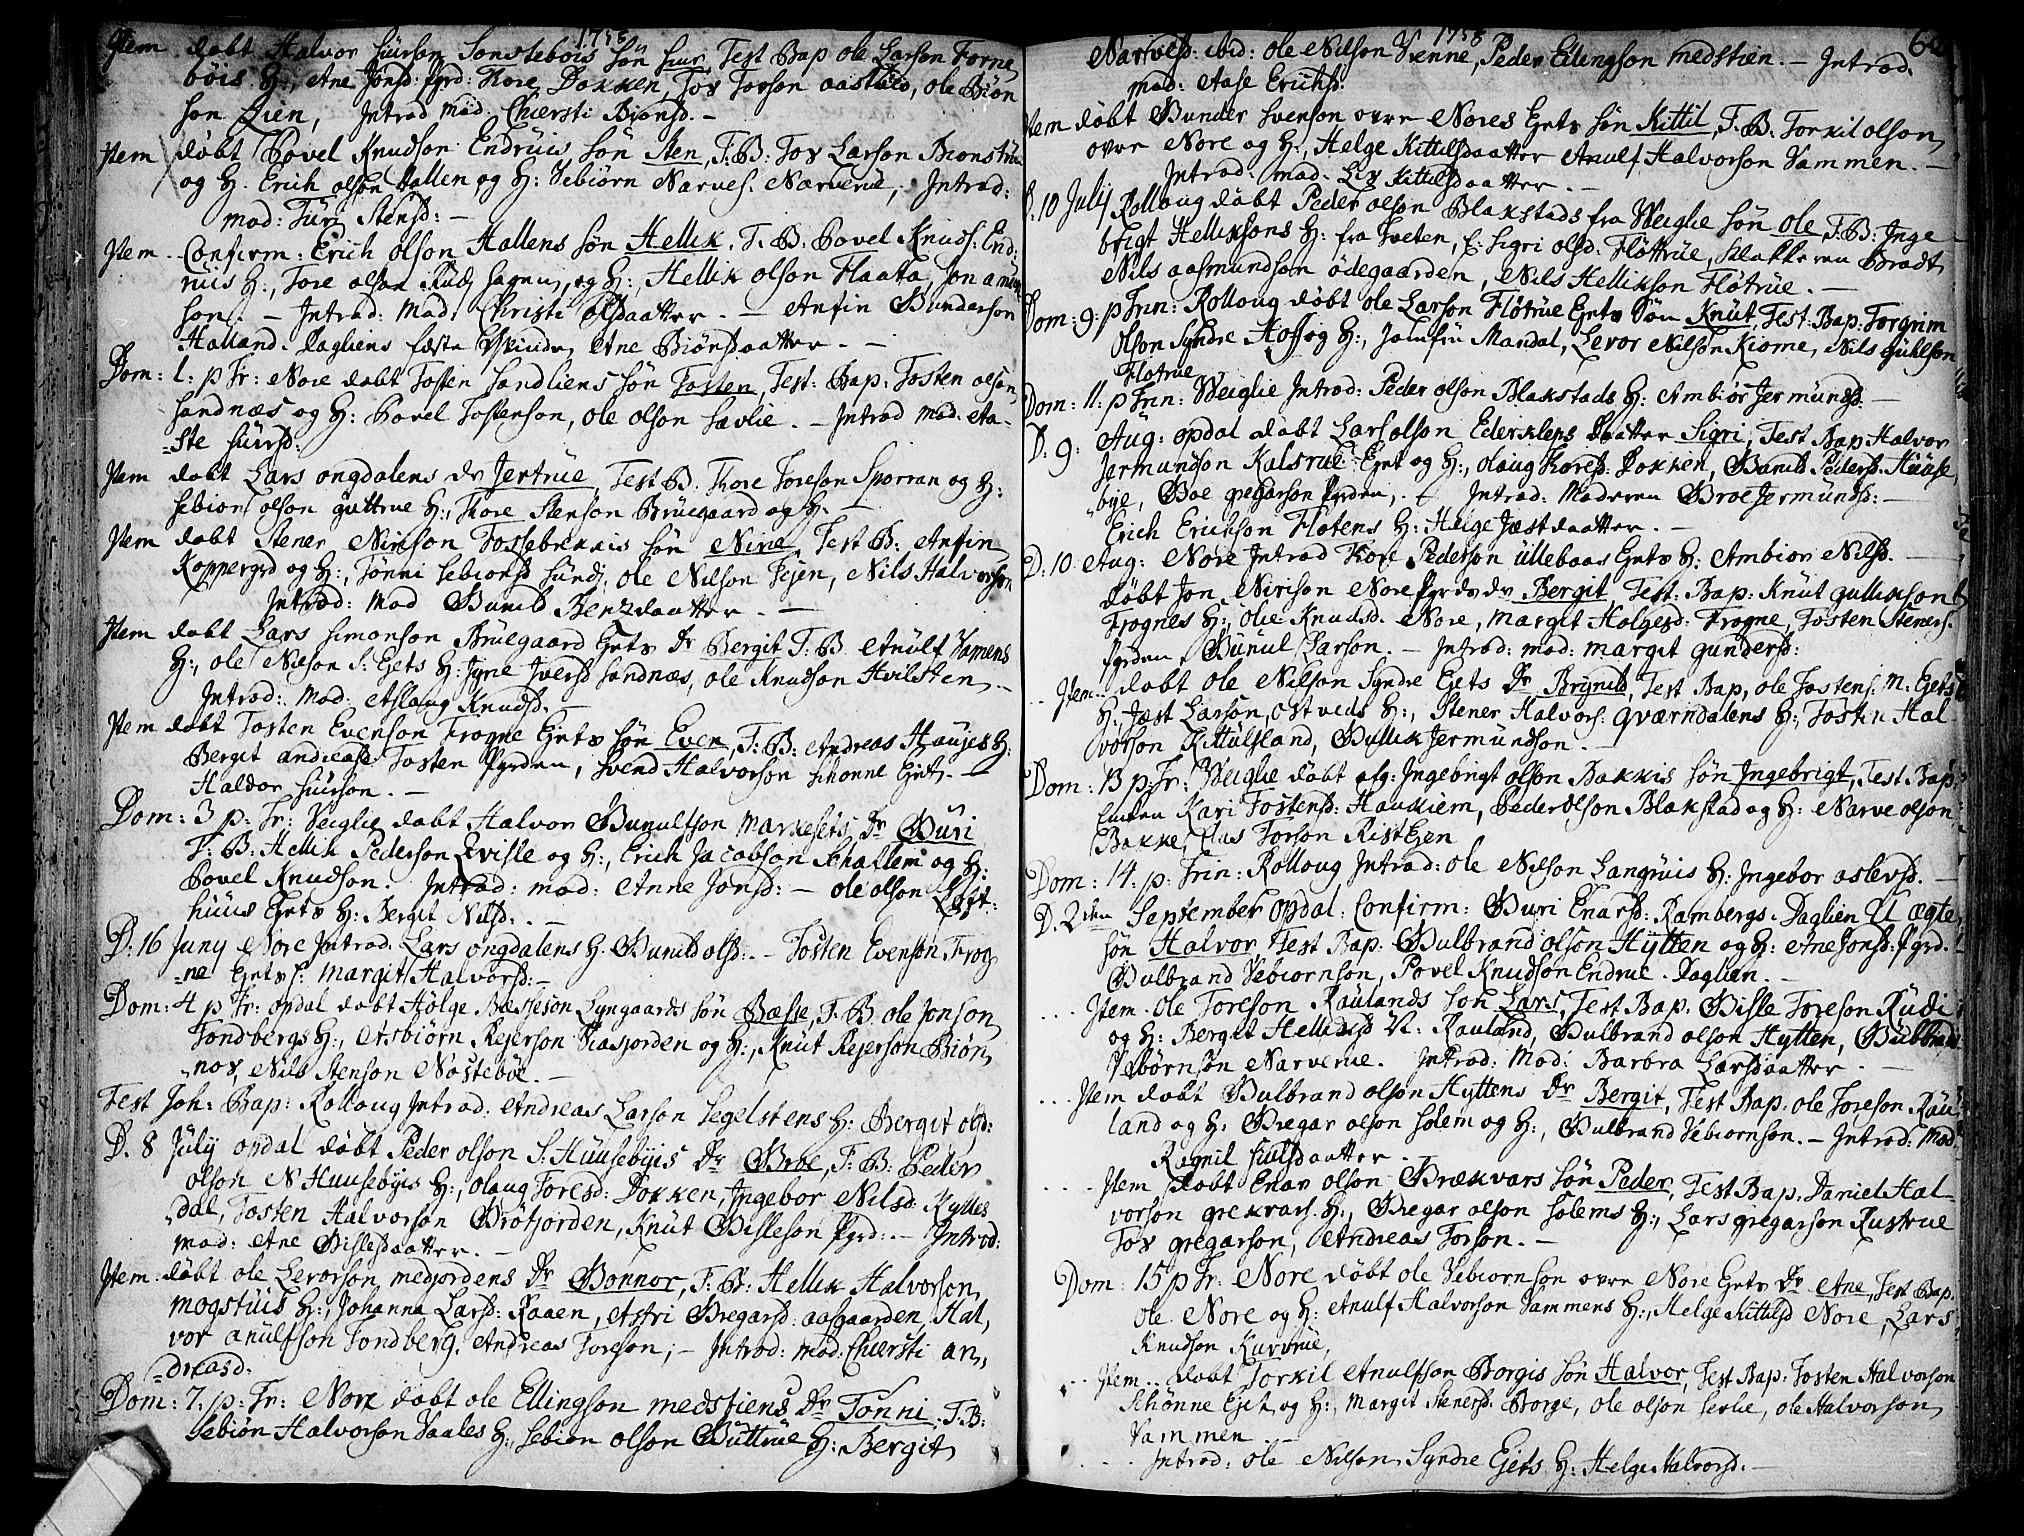 1758
Item døbt Halvor Siursøn Sønstebois søn Siur, Test Bap ole Larson Torne
bøis H:, Ane Jonsd: Pgrd: Kore Dokken, Tor Torson aasland, ole Biøn
son Lien, Introd mod. Chiersti Biønsd. –
Item døbt Povel Knudson Endruis søn Sten, T.B: Tor Larson Bionstru
og H. Erich olson Hallen og H: Vebiørn Narves. Narverue, Introd:
mod: Turi Stensd: –
Item Confirm: Erich olson Hallens søn Hellik, T. B. Povel Knuds: End:
ruis H:, Tore olson Rudj hagen, og H:, Hellik olson Flaata, Jon amund
son. – Introd: Mod: Christi olsdaatter. – Anfin Gunderson
Halland. Dagliens fæste Qvinde Ane Biønsdaatter. –
Dom: 1: p Tr: Nore døbt Tosten Sandliens søn Tosten, Test: Bap: Tosten olson
Sandnæs og H: Povel Tostenson, ole olson Sævlie. – Introd mod. Aa-
ste Siursd:
Item døbt Lars ongdalens Dr Jertrue, Test B. Thore Toreson Sporran og H:
Sebion olson guttrue H:, Thore Stenson Bruegaard og H. –
Item døbt Stener Nirison Fossebrekkis søn Nirie, Test B: Anfin
Koppergrd og H:, Tønni Sebionsd Sundj, ole Nilson Tejen, Nils Halvorson
Introd: Mod Gunild Benzdaatter. –
Item døbt Lars Simonson Bruegaard Eiets Dr Bergit T. B. Anulf Vamens
H:, ole Nilson S: Eiets H: Syne Iversd Sandnæs, ole Knudson Hvilsten
Introd: Mod. Aslaug Knudsd. –
Item døbt Tosten Evenson Frogne Eiets søn Even, T: B: Andreas Haujes H:
Bergit andreasd Tosten Pgrden, Svend Halvorson Schonne Eiets. –
Haldor Siurson. –
Dom: 3 p: Tr: Veiglie døbt Halvor Gunulfson markesets Dr Guri
T: B: Hellik Pederson Qvisle og H:, Erich Jacobson Schallem og H:
Povel Knudson. Introd: mod: Anne Jonsd: – ole olson Loft-
huus Eiets H: Bergit Nilsd: . –
D: 16 Juny Nore Introd. Lars ongdalens H: Gunild olsd: . – Tosten Evenson Frog
ne Eiets H: Margit Halvorsd: –
Dom: 4 p Tr: opdal døbt Holge Bæsseson Lyngaards søn Bæsse, T. B ole Jonson
Tondbergs H:, Asbiørn Rejerson Kiasjorden og H:, Knut Rejerson Biøn
nor, Nils Stenson Nøstebøe. –
Fest Joh: Bap: Rolloug Introd. Andreas Larson Segelstens H: Bergit olsd:
D. 8 July opdal døbt Peder olson S: Huusebyis Dr Groe, T: B: Peder
olson N Huusebyis H:, olaug Toresd: Dokken, Ingebor Nilsd: Kylles
dal, Tosten Halvorson Brøtjorden, Knut Gisleson Pgrd: . – Introd:
mod: Ane Gislesdaatter. –
Item: døbt ole Levorson medjordens Dr Gonnor, T. B: Hellik Halvorson
mogstuis H:, Johanna Larsd: Raaen, Astri Gregarsd: aasgaarden, Hal,
vor anulfson Tondberg, Andreas Toreson, – Introd: mod: Chiersti an,
dreasd.
Dom: 7: p: Tr: Nore døbt ole Ellingson medstiens Dr Tønni, T.B:
Sebiøn Halvorson Vaales H:, Sebion olson Guttrue H: Bergit
1758
Narvesd: ibid: ole Nilson Vrenne, Peder Ellingson medstien. – Introd.
mod: Aase Erichsd.
Item døbt Gunder Svenson ovre Nores Eiets søn Kittil, T: B: Torkil olson
ovre Nore og H:, Helge Kittilsdaatter Anulf Halvorson Vammen. –
Introd: mod. Liv Kittilsdaatter. –
D: 10 July Rolloug døbt Peder olson Blakstads fra Weiglie søn Ole, T:B: Inge
brigt Helliksons H: fra Tveten, E: Sigri olsd: Fløttrue, Klokkeren Bradt
Nils aasmundson ødegaarden, Nils Hellikson Fløtrue. –
Dom: 9: p Trin: Rolloug døbt ole Larson Fløtrue Eiets søn Knut, Test. Bap: Torgrim
olson Syndre Hoff og H:, Jomfru Mandal, Levor Nilson Kiome, Nils Guulson
Fløtrue
Dom: 11: p Trin: Weiglie Introd: Peder olson Blakstads H: Ambiør Jermundsd: –
D: 9: Aug: opdal døbt Lars olson Ederkleps Daatter Sigri, Test Bap Halvor
Jermundson Kalsrue Eiet og H:, olaug Koresd: Dokken, Gunild Pedersd: Huuse,
bye, Boe gregarson Pgrden, . – Introd: Moderen Groe Jermundsd: –
Erich Erickson Fløtens H: Helge Jæstdaatter. –
D: 10 Aug: Nore Introd Kore Pederson ullebaas Eiets H: Ambiør Nilsd. –
døbt Jon Nirison Nore Pgrds Dr Bergit, Test: Bap: Knut gullikson
Frognes H:, olie Knudsd. Nore, margit Holgesd: Frogne, Tosten Steners.
Pgrden, Gunul Larson. – Introd: mod: margit gundersd:
Item.. døbt ole Nilson Syndre Eiets Dr Brynild, Test Bap, ole Tostens: N: Eiets
H: Jæst Larson, ostveds H:, Stener Halvors: qværndalens H:, Tosten Hal
vorson Kittulsland, Gullik Jermundson. –
Dom: 13 p: Tr: Weiglie døbt afg: Ingebrigt olson Bakkis søn Ingebrigt, Test Bap
Enken Kari Tostensd: Haukiem, Peder olson Blakstad og H: Narve olson
Bakke, Clas Torson Ristejen
Dom: 14: p: Trin: Rolloug Introd: ole Nilson Langruis H: Ingebor aslevsd. –
D. 2den September opdal: Confirm: Guri Enarsd: Rambergs. Daglien Uægte
søn Halvor Test Bap: Gulbrand olson Hytten og H: Ane Jonsd: Pgrd:
Gulbrand Vebiornson, Povel Knudson Endrue. Daglien. –
.... Item. ole Toreson Raulands søn Lars, Test Bap. Gisle Toreson Rudi
og H: Bergit Helliksd N: Rauland, Gulbrand olson Hytten, Gulbrand
Vebørnson Narverue. Introd: Mod: Barbra Larsdaatter. –
.... Item døbt Gulbrand olson Hyttens Dr Bergit, Test Bap: ole Toreson Rau
land og H: Gregar olson Solem og H:, Gulbrand Vebiornson. – Introd: Mod:
Ragnil Siulsdaatter.
.... Item døbt Enar olson Brækvars søn Peder, Test Bap. Daniel Hal-
vorson grekvars. H:, Gregar olson Solems H:, Lars gregarson Rustrue
Tor gregarson, Andreas Torson. –
Dom: 15 p Tr: Nore døbt ole Vebiornson ovre Nore Eiets Dr Ane, Test Bap.
ole Nore og H: Anulf Halvorson Vammens H:, Helge Kittilsd Nore, Lars
Knudson Kurvrue,
.. Item.. døbt Torkil Anulfson Borgis søn Halvor, Test Bap: Tosten Halvorson
Schønne Ejet og H:, Margit Stenersd: Borge, ole olson Sevlie, ole Halvorson
Vammen. –
.... Introd: ole Nilson Syndre Ejets H: Helge Halvorsd: –